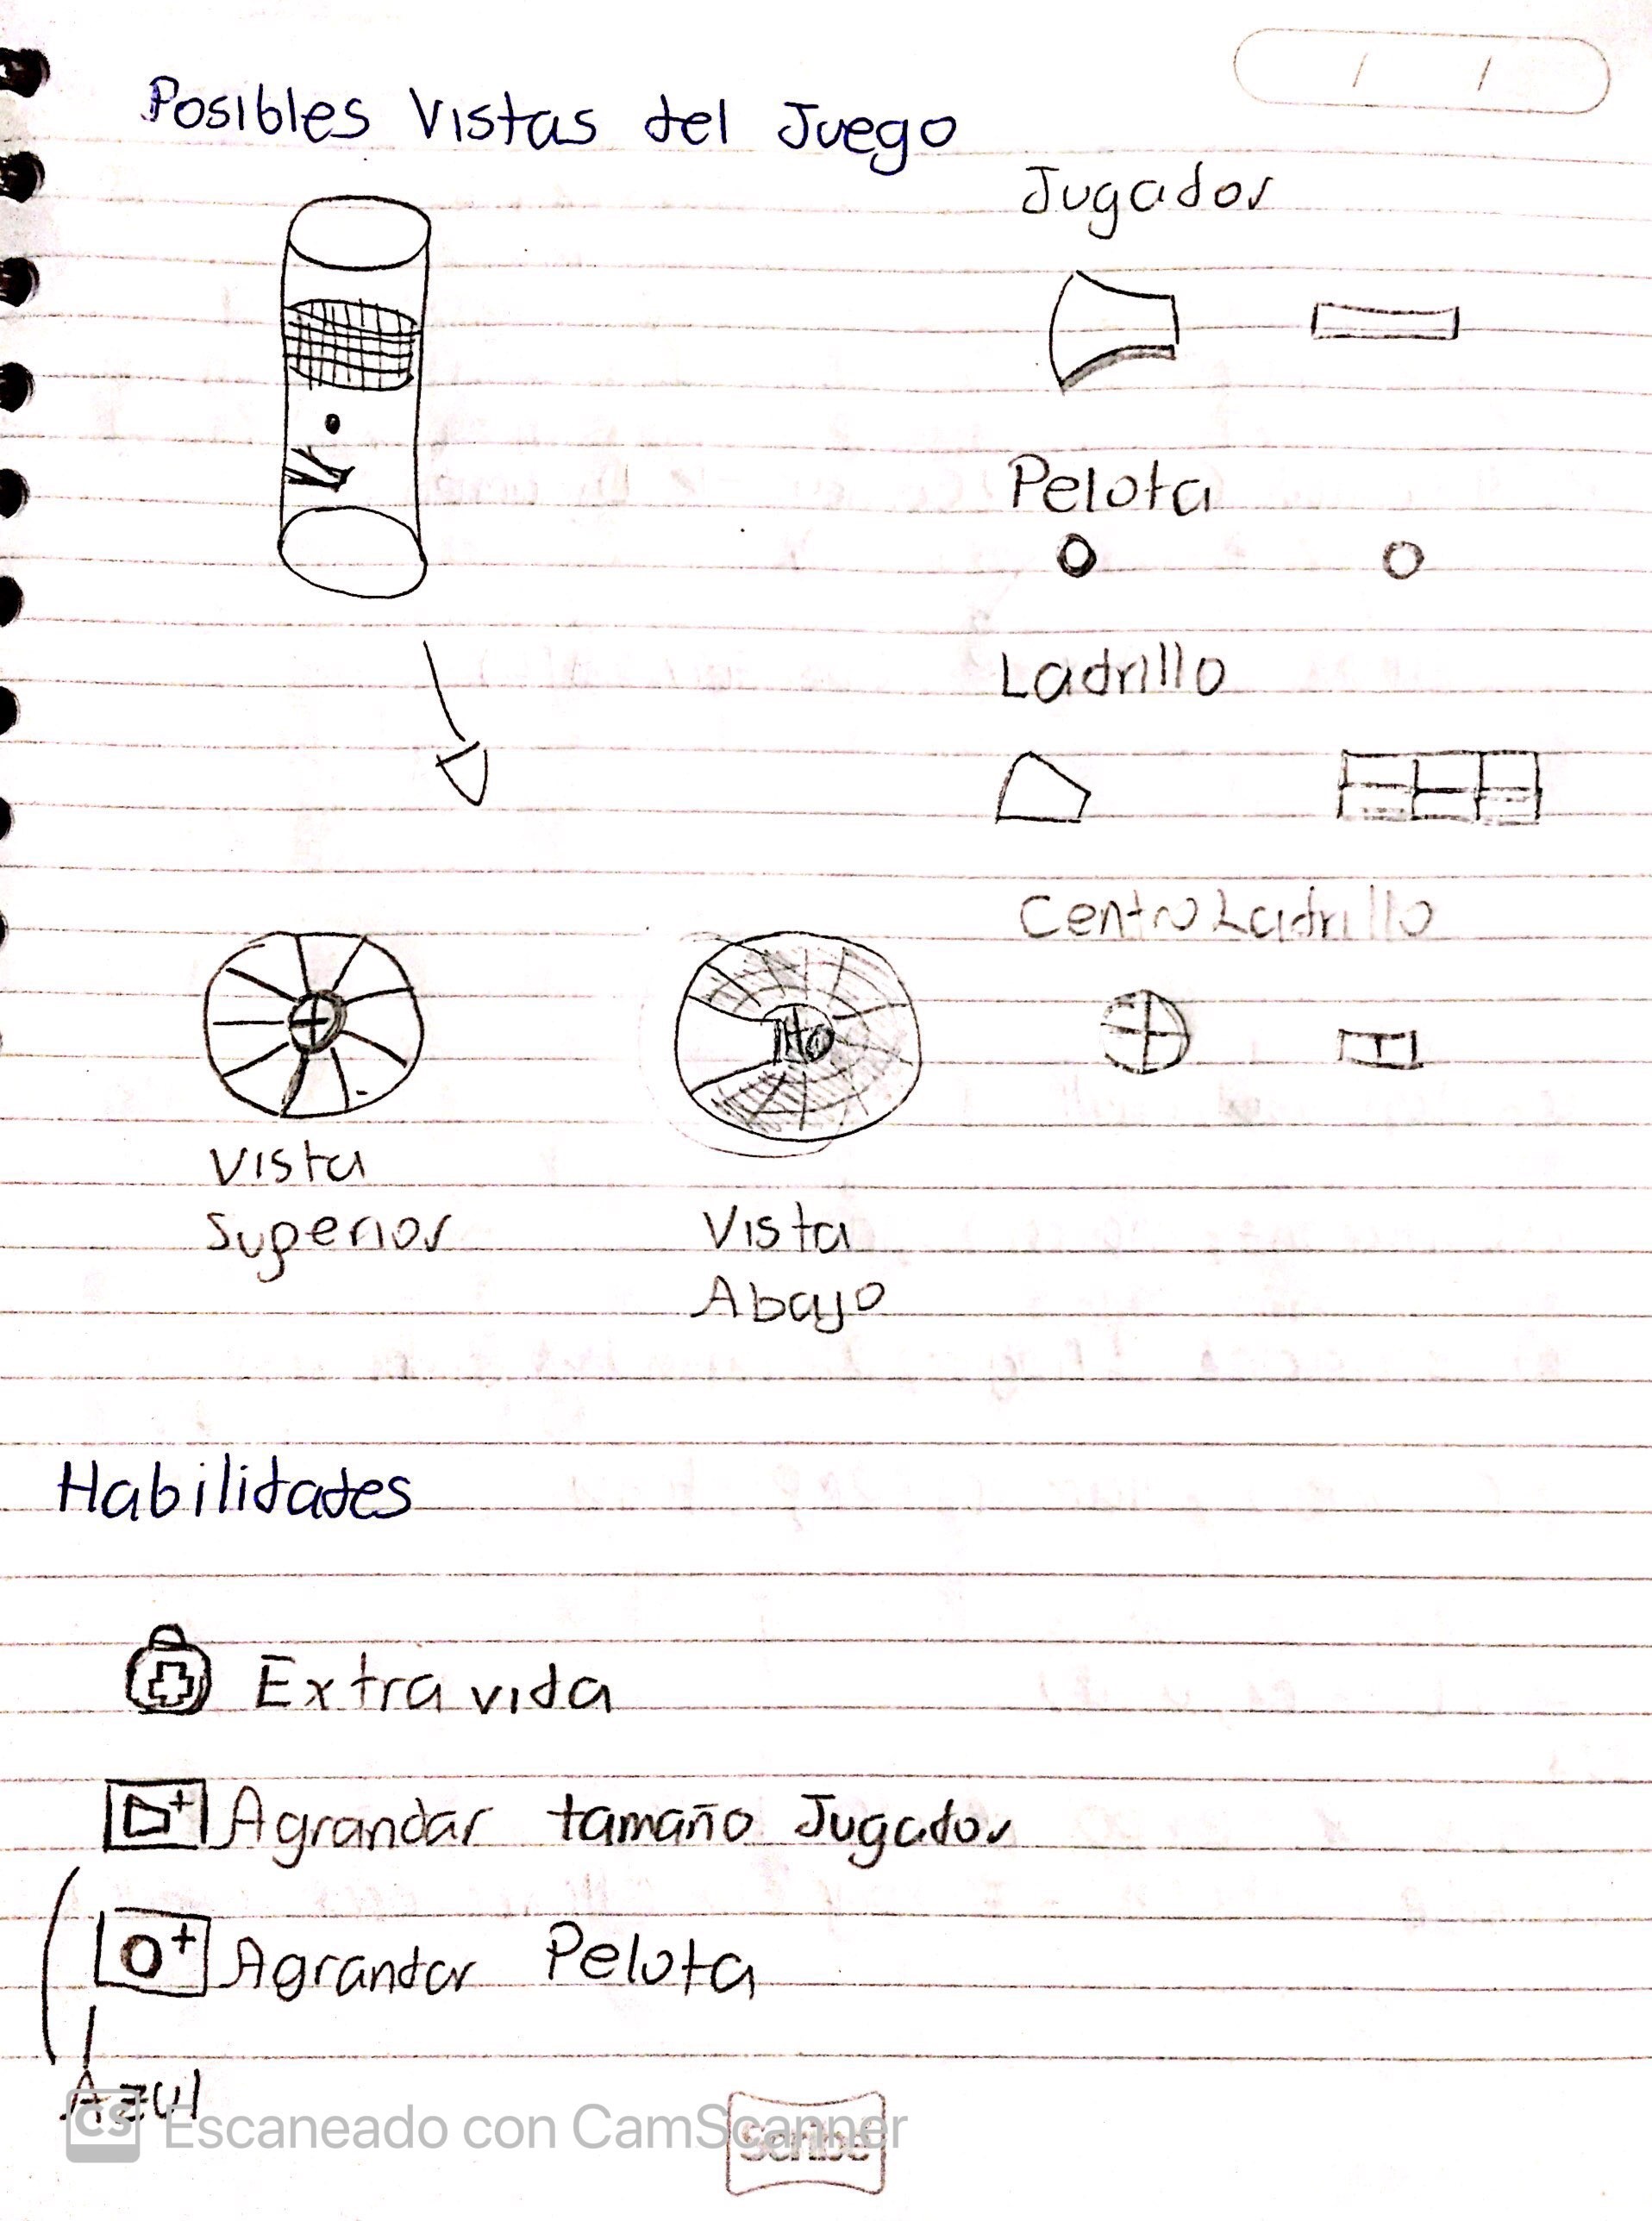 Posibles Vistas del Juego
Jugador
Pelota
Ladrillo
Centro Ladrillo
Vista
Superior
Vista
Abajo
Habilidades
Extra vida
Agrandar tamaño Jugador
Agrandar Pelota
Azul
CS Escaneado con CamScanner
Scribe